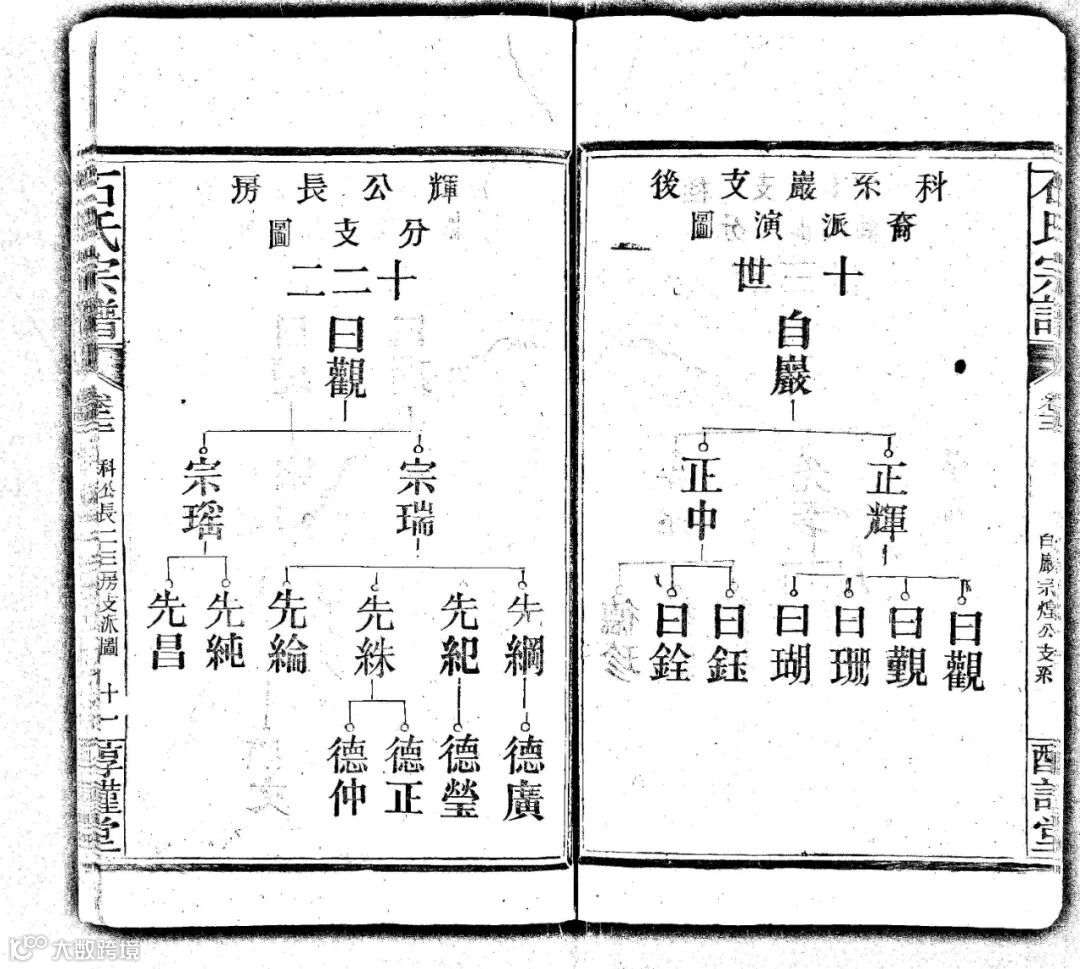 石氏宗譜
卷三
公支系
科系巖支後
裔派演圖
十世
自巖
正輝
正中
曰觀
曰觐
曰珊
曰瑚
曰鈺
曰銓
輝公長房
分支圖
十二二
曰觀
宗瑞
宗瑤
先綱
先紀
先絑
先綸
先純
先昌
德廣
德瑩
德正
德仲
石氏宗譜
卷三
科公長二三房支派圖
十一
惇謹堂
大数跨境